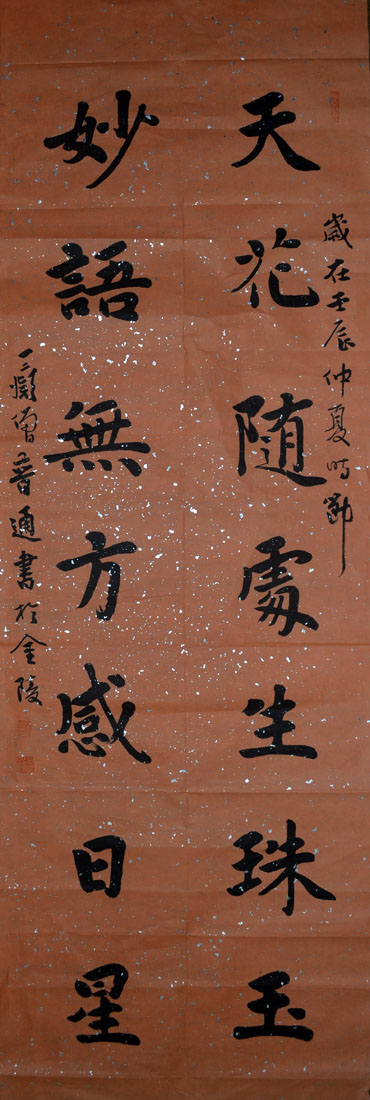 歲在壬辰仲夏時節
天花随處生珠玉
妙語無方感日星
三癡僧普通書於金陵